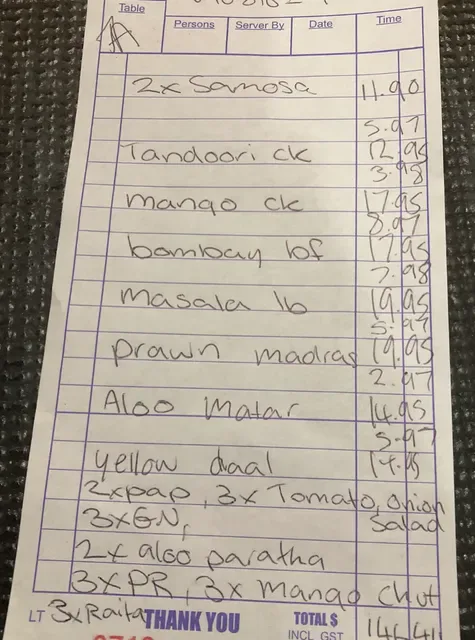 Table Persons Server By Date Time
2x Samosa 11.90
5.97
Tandoori ck 12.95
3.98
mango ck 17.95
8.97
bombay bf 17.95
7.98
masala lb 19.95
5.97
prawn madras 19.95
2.97
Aloo Matar 14.95
5.97
yellow daal 14.95
2xpap, 3x Tomato, onion
3xGN, Salad
2x aloo paratha
3xPR, 3x mango chut
LT 3x Raita THANK YOU TOTAL $
INCL GST